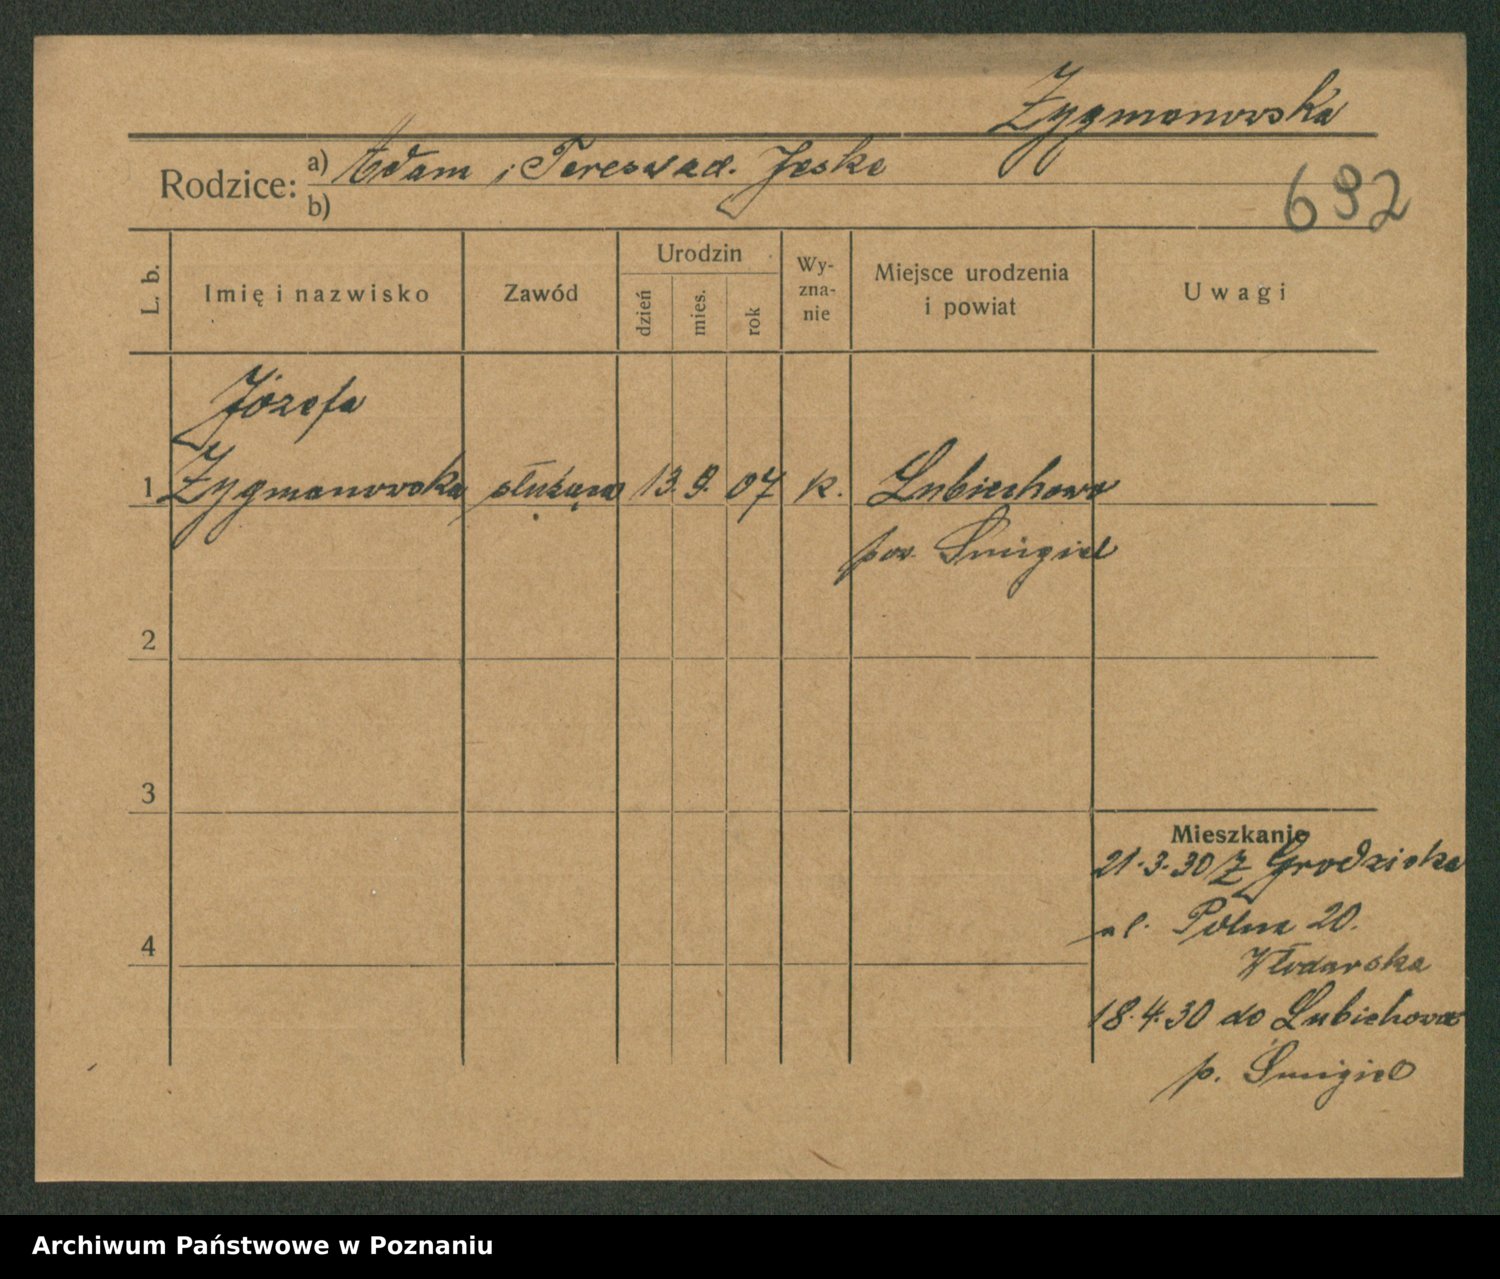 Zygmanowska
Rodzice: a) Adam i Teresa zd. Jeske
b)
692
L. b.
Imię i nazwisko
Zawód
Urodzin
dzień
mies.
rok
Wy-
zna-
nie
Miejsce urodzenia
i powiat
Uwagi
Józefa
1 Zygmanowska służąca 13. 9. 07 k. Lubiechowo
pow. Śmigiel
2
3
4
Mieszkanie
21.3.30 z Grodziska
ul. Polna 20.
Włodarska
18.4.30 do Lubiechowa
p. Śmigiel
Archiwum Państwowe w Poznaniu